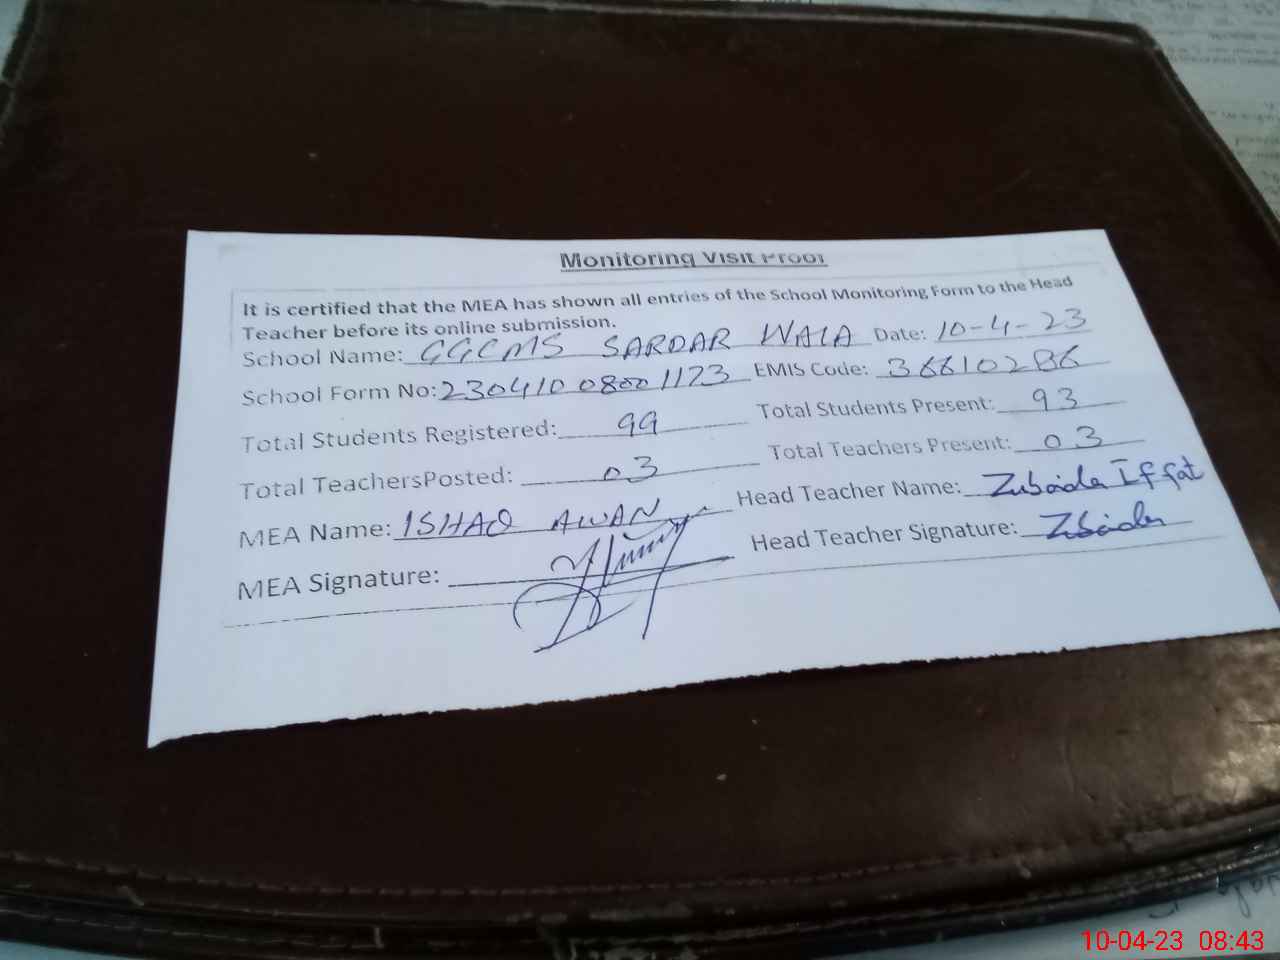 Monitoring Visit Proof
It is certified that the MEA has shown all entries of the School Monitoring Form to the Head
Teacher before its online submission.
School Name: GGCMS SARDAR WALA Date: 10-4-23
School Form No: 230410 08001173 EMIS Code: 36610286
Total Students Registered: 99 Total Students Present: 93
Total TeachersPosted: 03 Total Teachers Present: 03
MEA Name: ISHAQ AWAN Head Teacher Name: Zubaida Iffat
MEA Signature: Head Teacher Signature: Zubaida
10-04-23 08:43